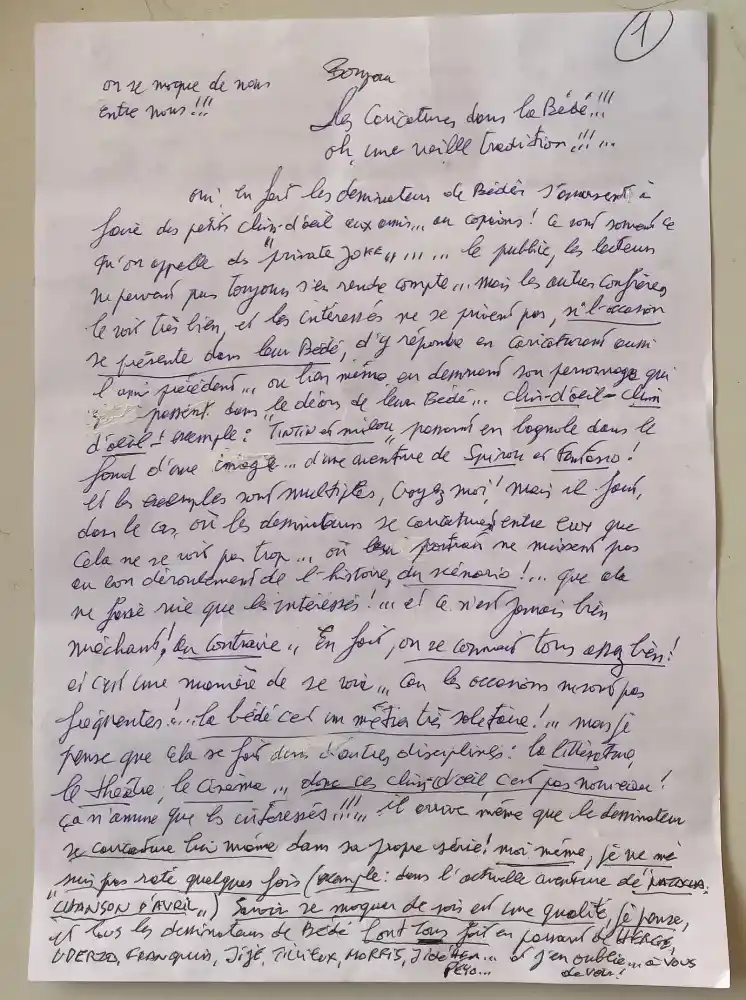 1
on se moque de nous
entre nous!!!
Bonjour
Les Caricatures dans la Bédé!!!
oh, une vieille tradition!!!...
oui, en fait les dessinateurs de Bédés s'amusent à
faire des petits clin-d'oeil aux amis... ou copains! Ce sont souvent ce
qu'on appelle des "private JOKE"...... le public, les lecteurs
ne peuvent pas toujours s'en rendre compte... mais les autres confrères
le voit très bien, et les intéressés ne se privent pas, si l'occasion
se présente dans leur Bédé, d'y répondre en caricaturant aussi
l'ami précédent... ou bien même en dessinant son personnage qui
passent dans le décors de leur Bédé... clin-d'oeil - clin
d'oeil! exemple: "TINTIN et milou" passant en bagnole dans le
fond d'une image... d'une aventure de Spirou et Fantasio!
et les exemples sont multiples, croyez moi! mais il faut,
dans le cas où les dessinateurs se caricaturent entre eux que
cela ne se voit pas trop... où leur portrait ne nuisent pas
au bon déroulement de l'histoire, du scénario!... que cela
ne fasse rire que les intéressés!... et ce n'est jamais bien
méchant! au contraire.. En fait, on se connait tous assez bien!
et c'est une manière de se voir... car les occasions ne sont pas
fréquentes!... la bédé c'est un métier très solitaire!... mais je
pense que cela se fait dans d'autres disciplines: la littérature,
le théatre, le cinéma... donc ces clin-d'oeil c'est pas nouveau!
ça n'amuse que les intéressés!!!!... il arrive même que le dessinateur
se caricature lui même dans sa propre série! moi même, je ne me
suis pas raté quelques fois (exemple: dans l'actuelle aventure de NATACHA:
"CHANSON D'AVRIL") Savoir se moquer de soi est une qualité, je pense,
et tous les dessinateurs de Bédé l'ont tous fait en passant de HERGÉ,
UDERZO, FRANQUIN, JIJÉ, TILLIEUX, MORRIS,
PEYO... et j'en oublie... à vous
de voir!